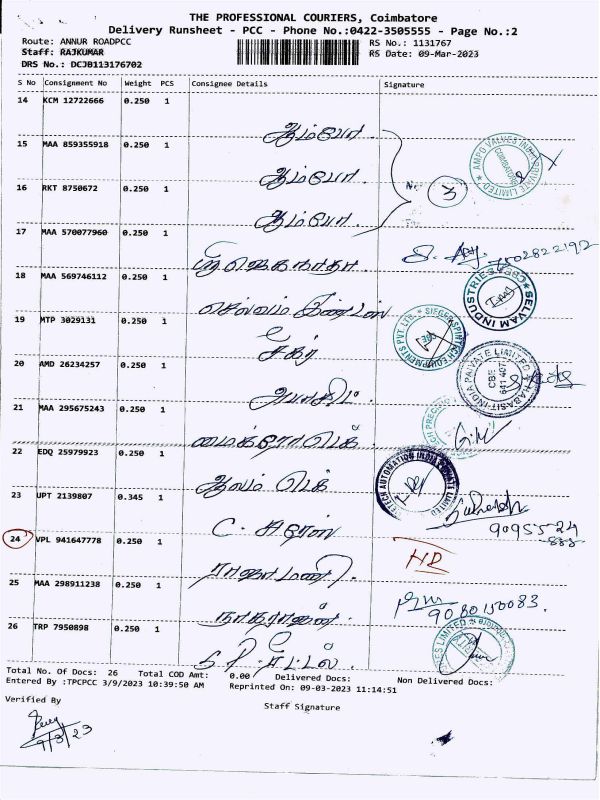 THE PROFESSIONAL COURIERS, Coimbatore
Delivery Runsheet - PCC - Phone No.:0422-3505555 - Page No.:2
Route: ANNUR ROADPCC RS No.: 1131767
Staff: RAJKUMAR RS Date: 09-Mar-2023
DRS No.: DCJB113176702
S No Consignment No Weight PCS Consignee Details Signature
14 KCM 12722666 0.250 1 ஆம்போ
15 MAA 859355918 0.250 1 ஆம்போ. AMPO VALVES INDIA PRIVATE LIMITED COIMBATORE
16 RKT 8750672 0.250 1 ஆம்போ. 3
17 MAA 570077960 0.250 1
18 MAA 569746112 0.250 1 செல்வம் SELVAM INDUSTRIES
19 MTP 3029131 0.250 1 SIEGER SPINTECH EQUIPMENTS PVT. LTD.
20 AMD 26234257 0.250 1 HABASIT-INDIA PRIVATE LIMITED CBE 641 407
21 MAA 295675243 0.250 1 மைக்ரோ டெக்
22 EDQ 25979923 0.250 1 AUTOMATION INDIA PRIVATE LIMITED
23 UPT 2139807 0.345 1 Suresh
90955-24
24 VPL 941647778 0.250 1 ராஜாமணி.
25 MAA 298911238 0.250 1 நாகராஜன். 9080150083.
26 TRP 7950898 0.250 1 S.P.
Total No. Of Docs: 26 Total COD Amt: 0.00 Delivered Docs: Non Delivered Docs:
Entered By :TPCPCC 3/9/2023 10:39:50 AM Reprinted On: 09-03-2023 11:14:51
Verified By Staff Signature
9/3/23